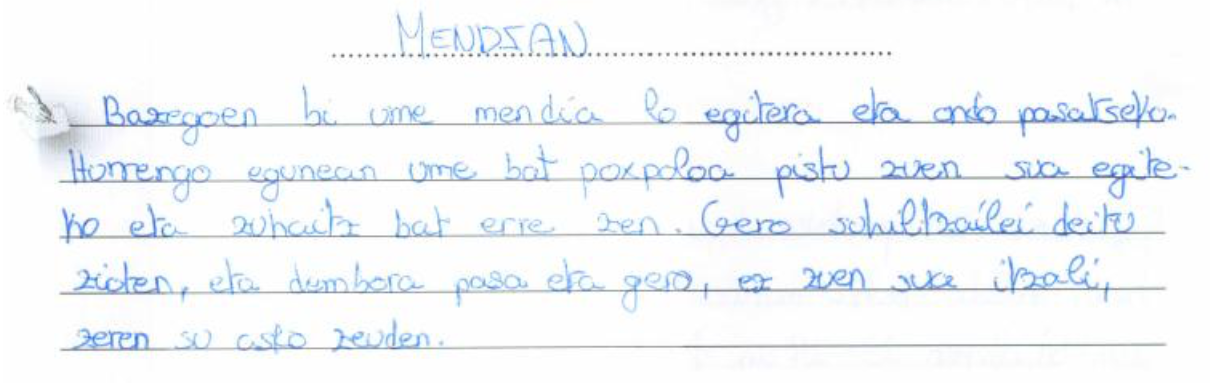 MENDIAN
Bazegoen bi ume mendia lo egitera eta ondo pasatseko.
Hurrengo egunean ume bat poxpoloa pistu zuen sua egite-
ko eta zuhaitz bat erre zen. Gero suhiltzailei deitu
zioten, eta dembora pasa eta gero, ez zuen sua itzali,
zeren su asko zeuden.